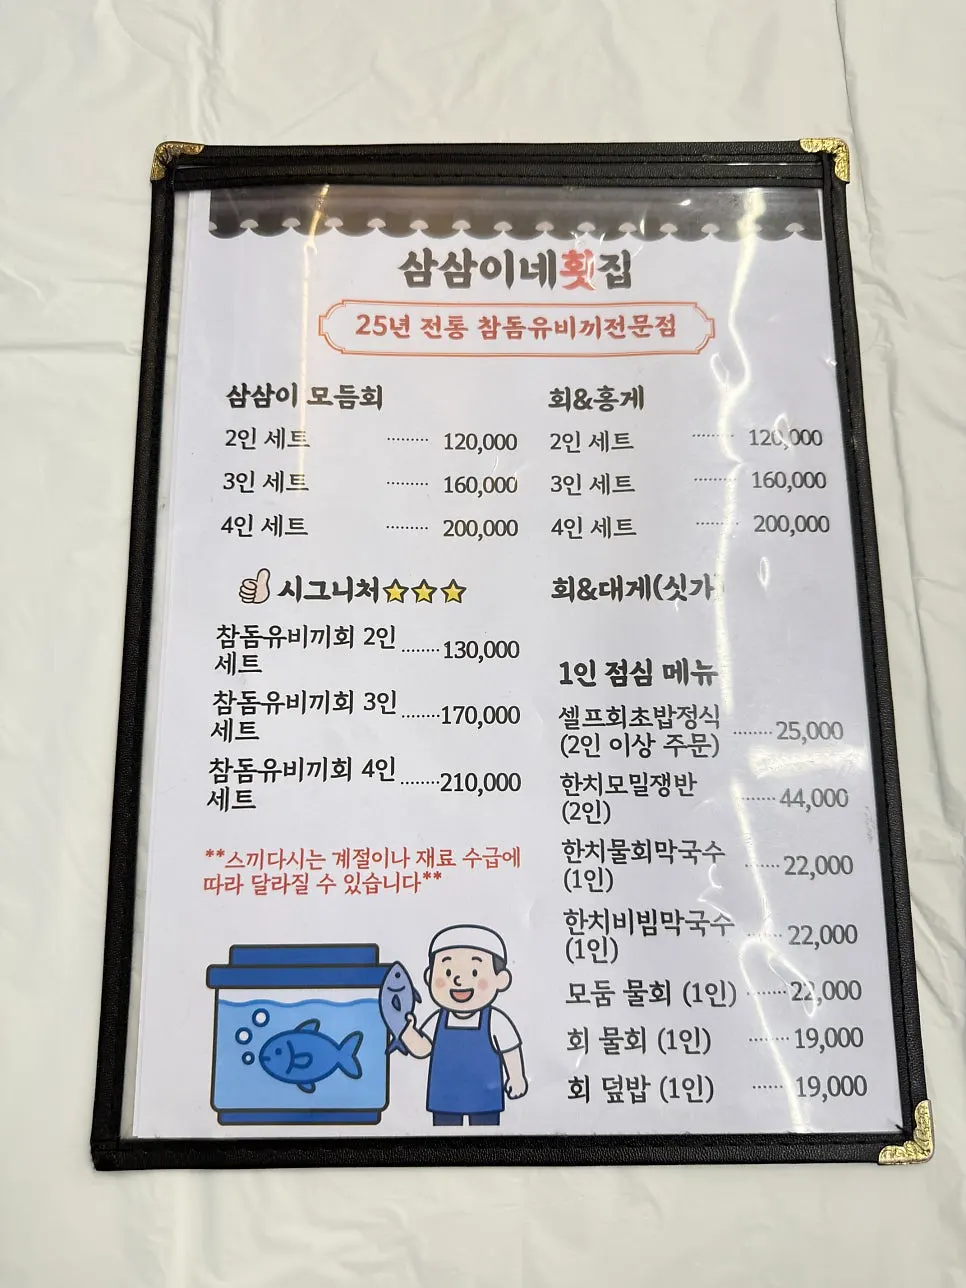 삼삼이네횟집
25년 전통 참돔유비끼전문점
삼삼이 모듬회
2인 세트 ........ 120,000
3인 세트 ........ 160,000
4인 세트 ........ 200,000
시그니처
참돔유비끼회 2인
세트 ........130,000
참돔유비끼회 3인
세트 ........170,000
참돔유비끼회 4인
세트 ........210,000
**스끼다시는 계절이나 재료 수급에
따라 달라질 수 있습니다**
회&홍게
2인 세트 ........ 120,000
3인 세트 ........ 160,000
4인 세트 ........ 200,000
회&대게(싯가)
1인 점심 메뉴
셀프회초밥정식
(2인 이상 주문) ........ 25,000
한치모밀쟁반
(2인) ....... 44,000
한치물회막국수
(1인) ....... 22,000
한치비빔막국수
(1인) ....... 22,000
모둠 물회 (1인) ........ 22,000
회 물회 (1인) ........ 19,000
회 덮밥 (1인) ...... 19,000